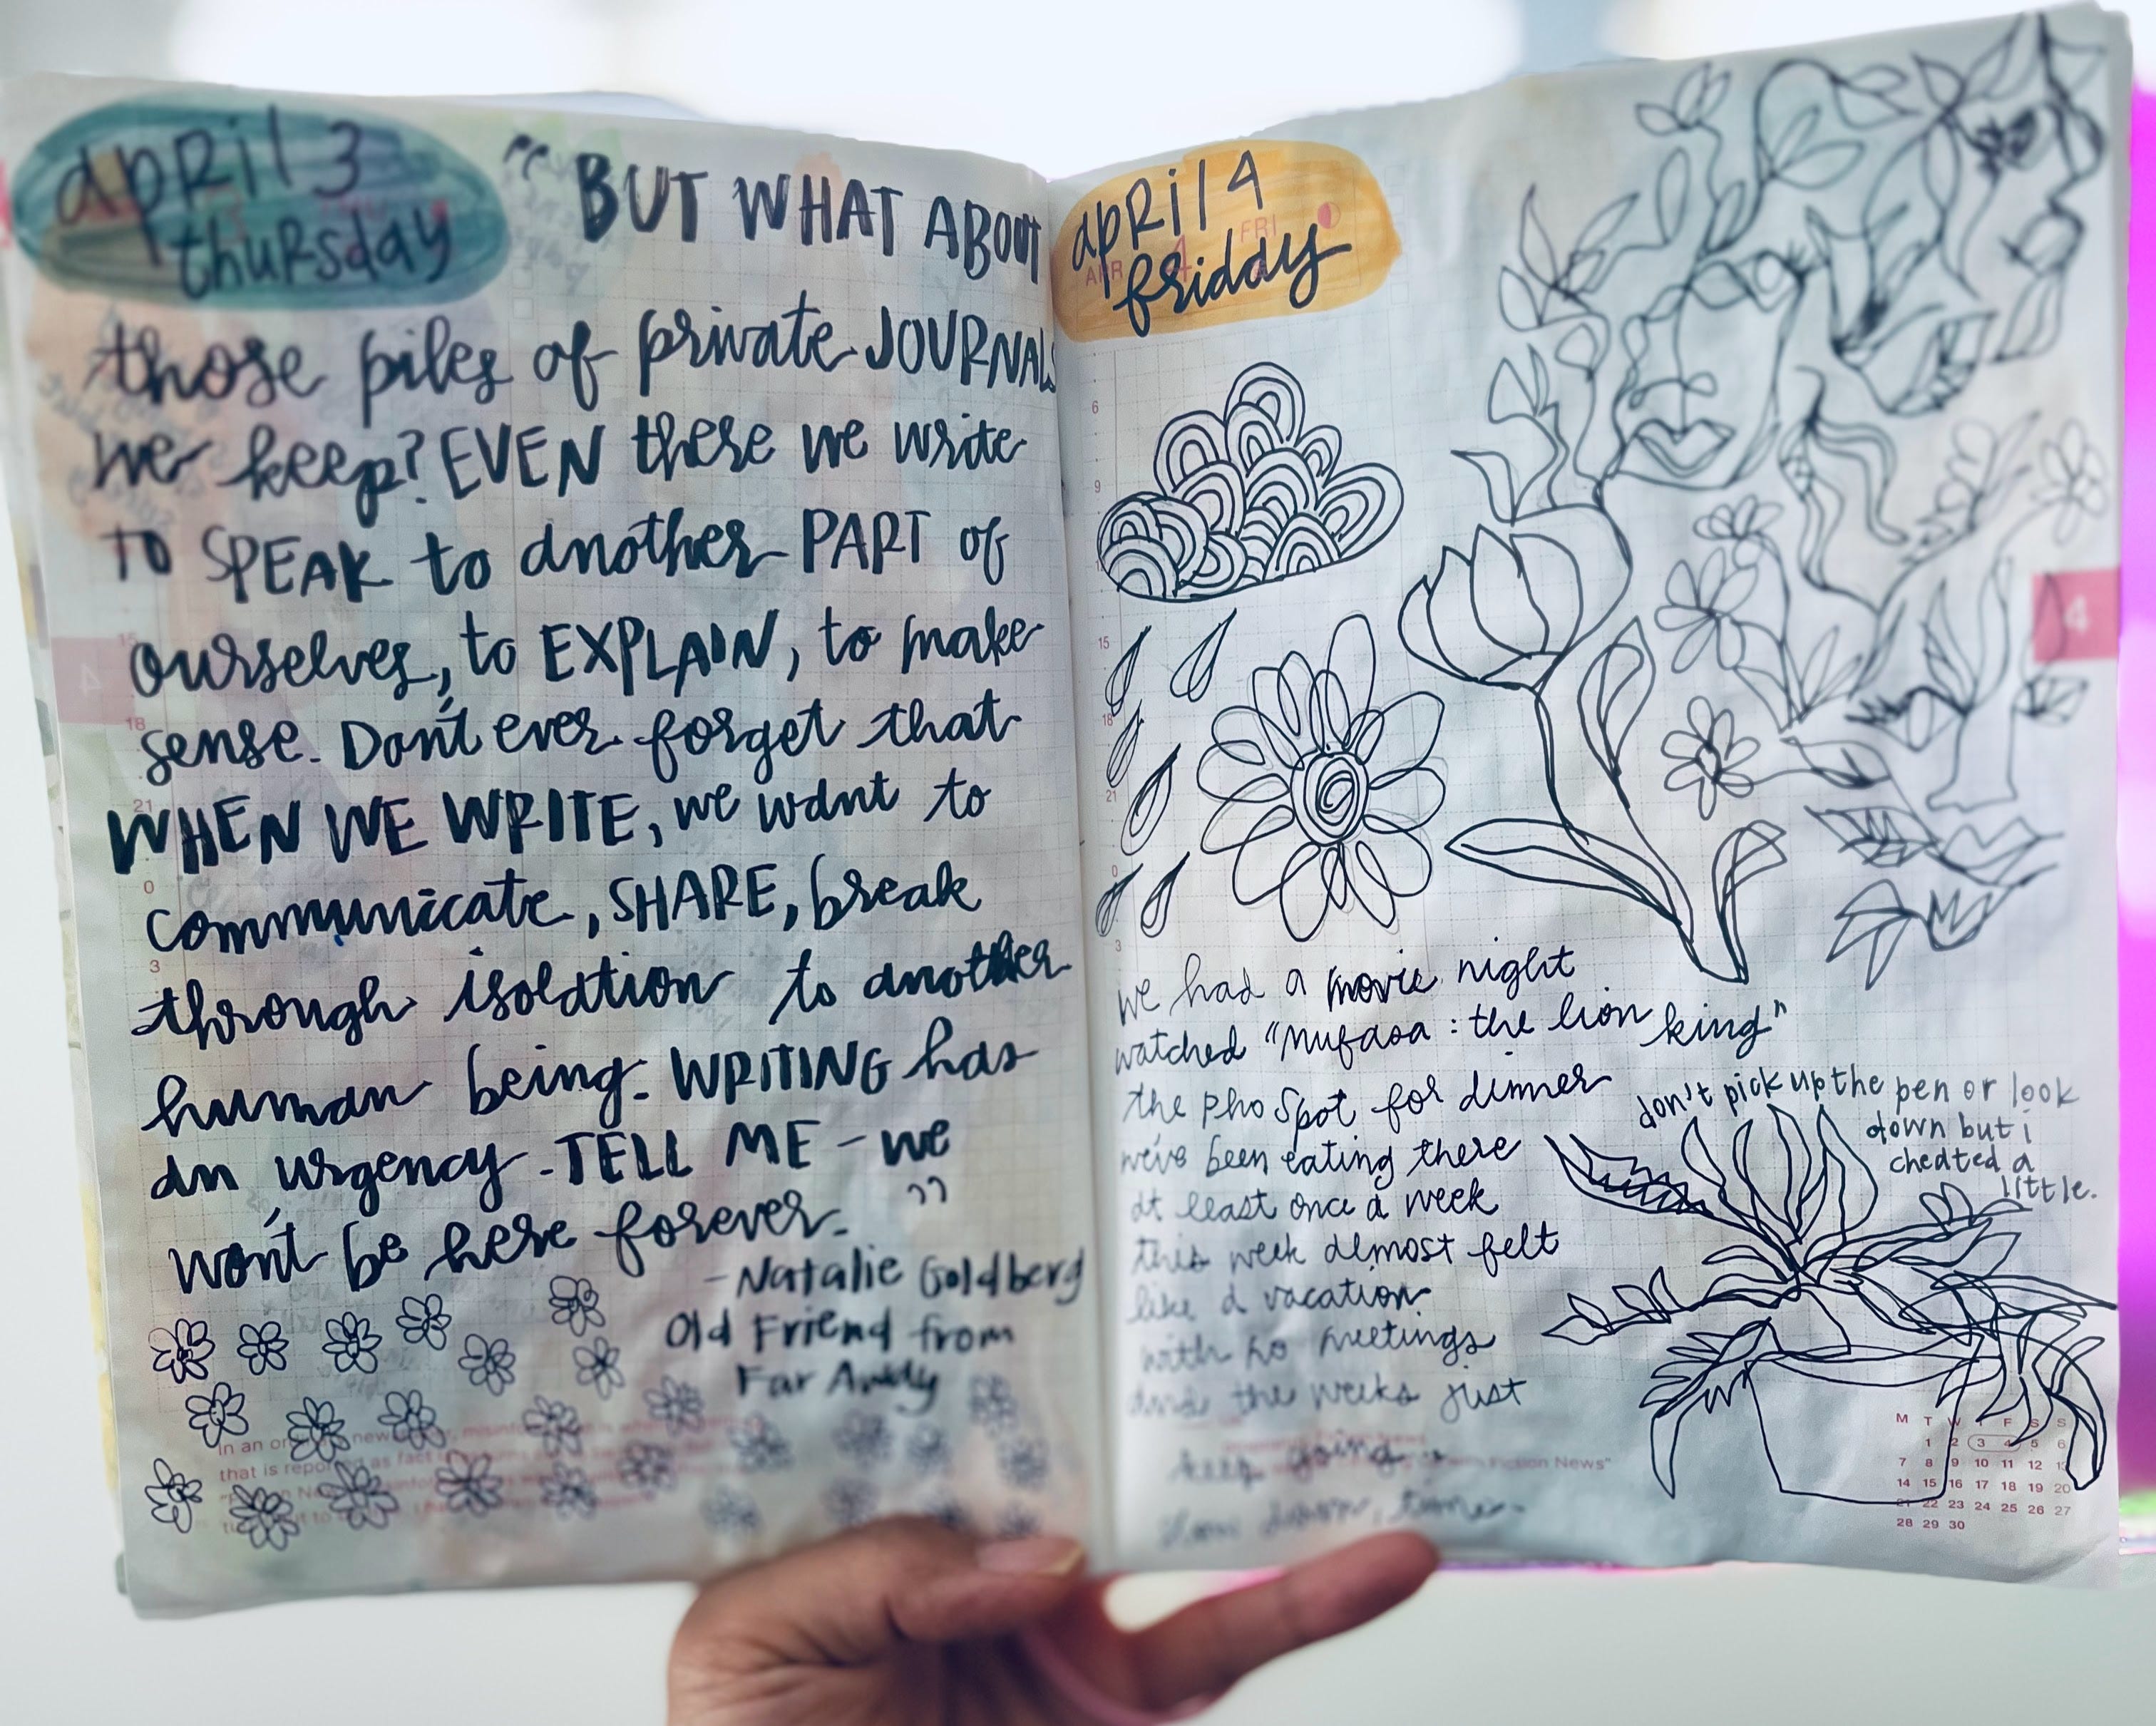 april 3
thursday
"BUT WHAT ABOUT
those piles of private JOURNALS
we keep? EVEN there we write
TO SPEAK to another PART of
ourselves, to EXPLAIN, to make
sense. Don't ever forget that
WHEN WE WRITE, we want to
communicate, SHARE, break
through isolation to another
human being. WRITING has
an urgency - TELL ME - we
won't be here forever. "
- Natalie Goldberg
Old Friend from
Far Away
4
15
18
21
0
3
In an
that is reported as fact
april 4
friday
APR 4 FRI
6
9
15
18
21
0
3
4
we had a movie night
watched "Mufasa: the lion king"
the pho spot for dinner
we've been eating there
at least once a week
this week almost felt
like a vacation
with no meetings
and the weeks just
keep going
slow down, time.
Fiction News"
don't pick up the pen or look
down but i
cheated a
little.
M T W T F S S
1 2 3 4 5 6
7 8 9 10 11 12 13
14 15 16 17 18 19 20
21 22 23 24 25 26 27
28 29 30